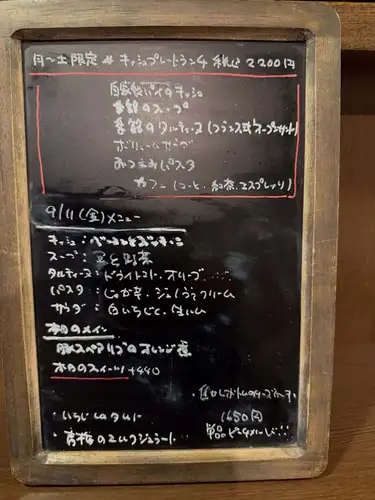 月〜土限定 キッシュプレートランチ 税込 2200円
自家製パイのキッシュ
季節のスープ
季節のタルティーヌ (フランス式オープンサンド)
ボリュームサラダ
おつまみパスタ
カフェ (コーヒー、紅茶、エスプレッソ)
9/11(金)メニュー
キッシュ: ベーコンとズッキーニ
スープ: 豆と野菜
タルティーヌ: ドライトマト、オリーブ
パスタ: じゃが芋、ジェノヴァクリーム
サラダ: 白いちじく、生ハム
本日のメイン
豚スペアリブのオレンジ煮
本日のスイーツ +440
・いちじくのタルト
1650円